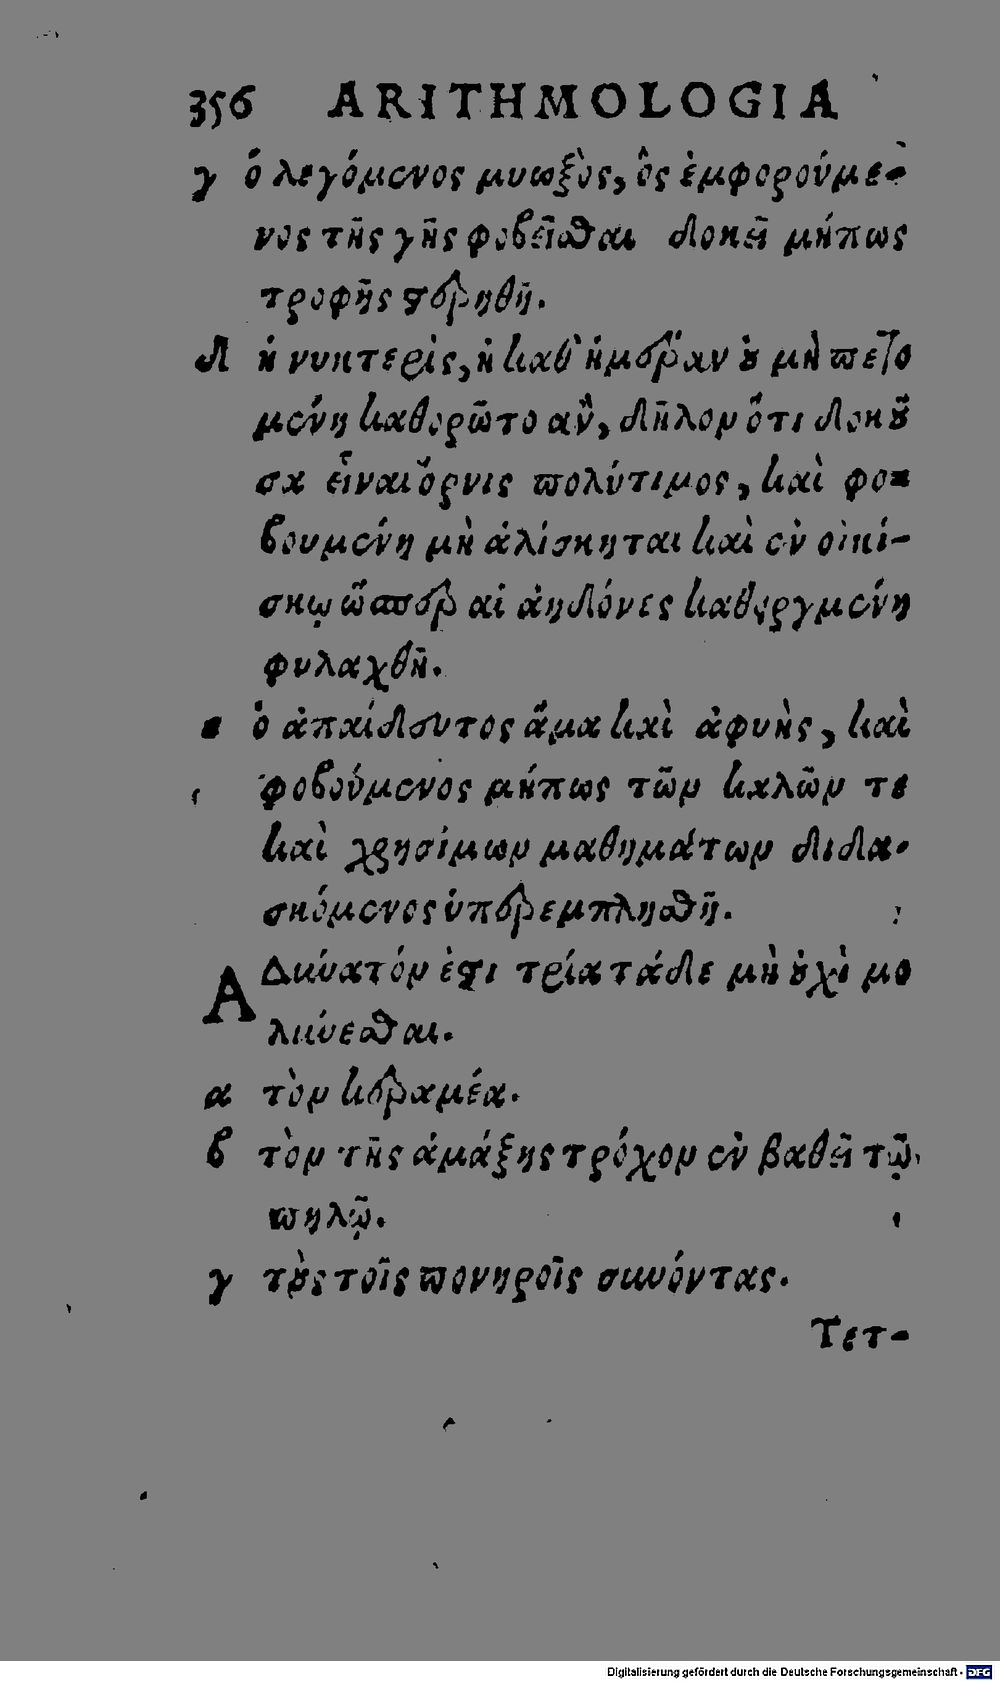 356 ARITHMOLOGIA
γ ὁ λεγόμενος μυωξὸς, ὃς ἐμφορούμε-
νος τῆς γῆς φοβεῖσθαι δοκεῖ μήπως
τροφῆς στερηθῇ.
δ ἡ νυκτερὶς, ἡ καθ' ἡμέραν οὐ μὴ πετο
μένη καθορῶτο ἂν, δῆλον ὅτι δοκοῦ
σα εἶναι ὄρνις πολύτιμος, καὶ φο-
βουμένη μὴ ἁλίσκηται καὶ ἐν οἰκί-
σκῳ ὥσπερ αἱ ἀηδόνες καθειργμένη
φυλαχθῇ.
ε ὁ ἀπαίδευτος ἅμα καὶ ἀφυὴς, καὶ
φοβούμενος μήπως τῶν καλῶν τε
καὶ χρησίμων μαθημάτων διδα-
σκόμενος ὑπερεμπλησθῇ.
ΑΔύνατόν ἐστι τρία τάδε μὴ οὐχὶ μο
λύνεσθαι.
α τὸν κεραμέα.
β τὸν τῆς ἁμάξης τρόχον ἐν βαθεῖ τῷ
πηλῷ.
γ τοὺς τοῖς πονηροῖς συνόντας.
Τετ-
Digitalisierung gefördert durch die Deutsche Forschungsgemeinschaft - DFG